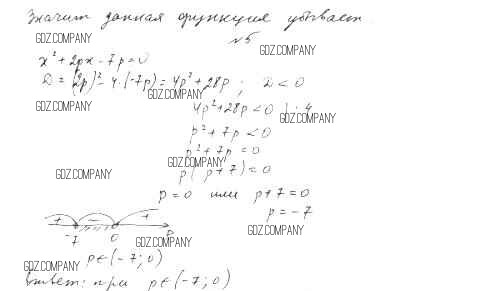 Значит данная функция убывает.
GDZ.COMPANY
№5
GDZ.COMPANY
x² + 2px - 7p = 0
GDZ.COMPANY
D = (2p)² - 4·(-7p) = 4p² + 28p ; D < 0
GDZ.COMPANY
GDZ.COMPANY
4p² + 28p < 0 | : 4
GDZ.COMPANY
p² + 7p < 0
p² + 7p = 0
GDZ.COMPANY
p(p+7) = 0
GDZ.COMPANY
p = 0 или p+7 = 0
p = -7
+ - +
-7 0 p
GDZ.COMPANY
GDZ.COMPANY
p ∈ (-7; 0)
GDZ.COMPANY
Ответ: при p ∈ (-7; 0)